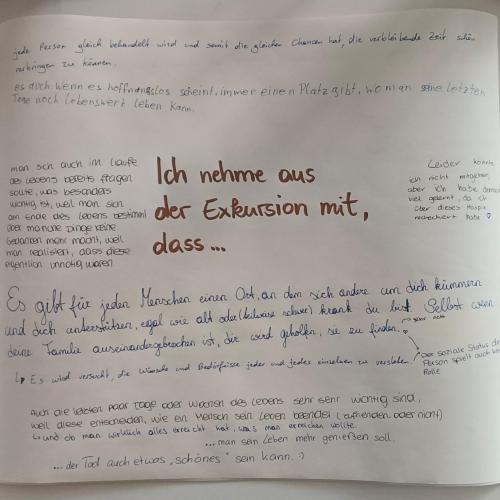 jede Person gleich behandelt wird und somit die gleichen Chancen hat, die verbleibende Zeit schön
verbringen zu können.
es auch wenn es hoffnungslos scheint, immer einen Platz gibt, wo man seine letzten
Tage noch lebenswert leben kann.
man sich auch im Laufe
des Lebens bereits fragen
sollte, was besonders
wichtig ist, weil man sich
am Ende des Lebens bestimmt
über manche Dinge keine
Gedanken mehr macht, weil
man realisiert, dass diese
eigentlich unnötig waren.
Ich nehme aus
der Exkursion mit,
dass...
Leider konnte
ich nicht mitgehen,
aber ich habe
viel gelernt, da ich
über dieses Hospiz
recherchiert habe
Es gibt für jeden Menschen einen Ort, an dem sich andere um dich kümmern
und dich unterstützen, egal wie alt oder krank du bist. Selbst wenn
deine Familie auseinandergebrochen ist, dir wird geholfen, sie zu finden.
Der soziale Status der
Person spielt auch keine
Rolle
↳ Es wird versucht, die Wünsche und Bedürfnisse jeder und jedes einzelnen zu verstehen.
Auch die letzten paar Tage oder Wochen des Lebens sehr sehr wichtig sind,
weil diese entscheiden, wie ein Mensch sein Leben beendet (zufrieden oder nicht)
↳ und ob man wirklich alles erreicht hat, was man erreichen wollte.
...man sein Leben mehr genießen soll.
...der Tod auch etwas „schönes" sein kann. :)